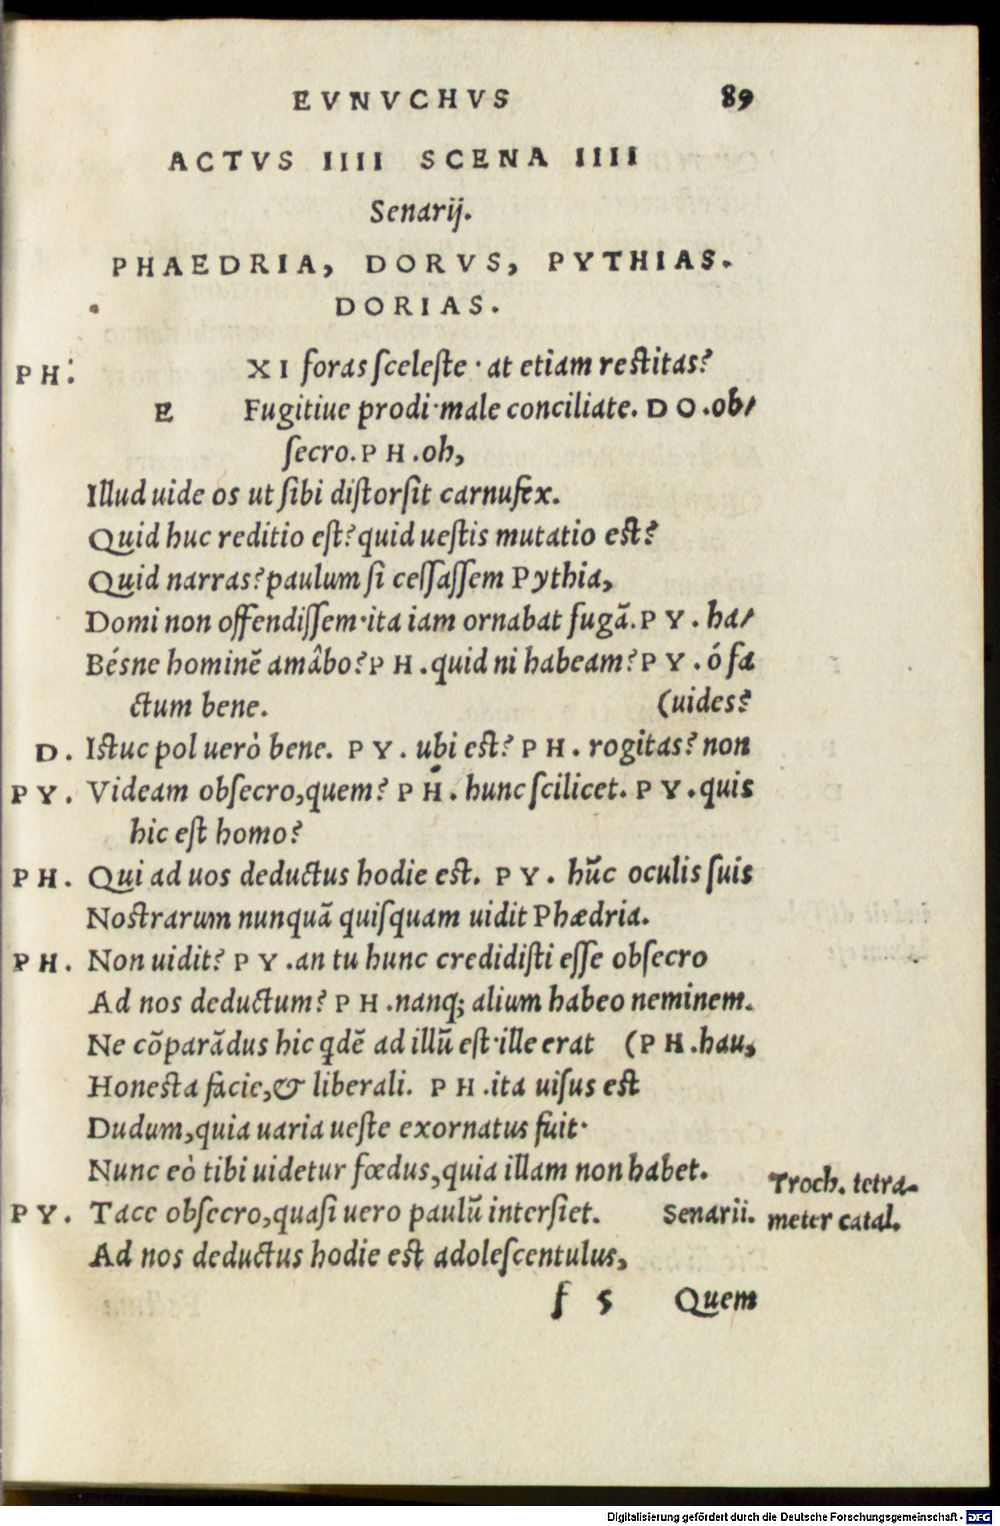 EVNVCHVS 89
ACTVS IIII SCENA IIII
Senarij.
PHAEDRIA, DORVS, PYTHIAS.
DORIAS.
PH. XI foras ſceleſte · at etiam reſtitas?
E Fugitiue prodi·male conciliate. DO.ob/
ſecro.PH.oh,
Illud uide os ut ſibi diſtorſit carnufex.
Quid huc reditio eſt? quid ueſtis mutatio eſt?
Quid narras? paulum ſi ceſſaſſem Pythia,
Domi non offendiſſem·ita iam ornabat fugā.PY. ha/
Bésne hominē amâbo?PH.quid ni habeam?PY.ó fa
ctum bene. (uides?
D. Iſtuc pol uerò bene. PY. ubi eſt? PH. rogitas? non
PY. Videam obſecro,quem? PH. hunc ſcilicet. PY.quis
hic eſt homo?
PH. Qui ad uos deductus hodie eſt. PY. hūc oculis ſuis
Noſtrarum nunquā quiſquam uidit Phædria.
PH. Non uidit? PY.an tu hunc credidiſti eſſe obſecro
Ad nos deductum? PH.nanq; alium habeo neminem.
Ne cōparādus hic qdē ad illū eſt·ille erat (PH.hau,
Honeſta facie,& liberali. PH.ita uiſus eſt
Dudum,quia uaria ueſte exornatus fuit·
Nunc eò tibi uidetur fœdus,quia illam non habet.
Troch. tetra-
PY. Tace obſecro,quaſi uero paulū interſiet. Senarii. meter catal.
Ad nos deductus hodie eſt adoleſcentulus,
f 5 Quem
Digitalisierung gefördert durch die Deutsche Forschungsgemeinschaft - DFG